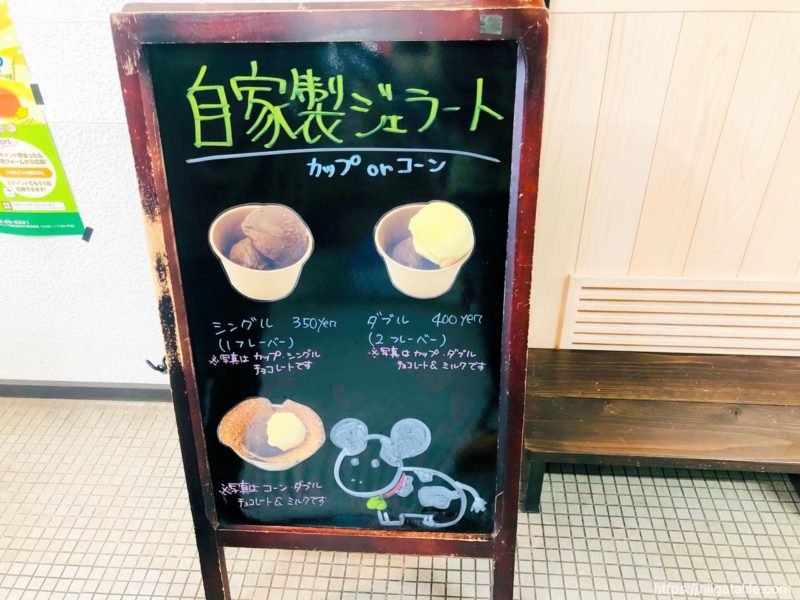 自家製ジェラート
カップ or コーン
シングル 350yen
(1フレーバー)
※写真は カップ・シングル
チョコレートです
ダブル 400yen
(2フレーバー)
※写真は カップ・ダブル
チョコレート& ミルクです
※写真は コーン・ダブル
チョコレート& ミルクです
ポイント貯まったら
応募できます!
https://niigatalife.com